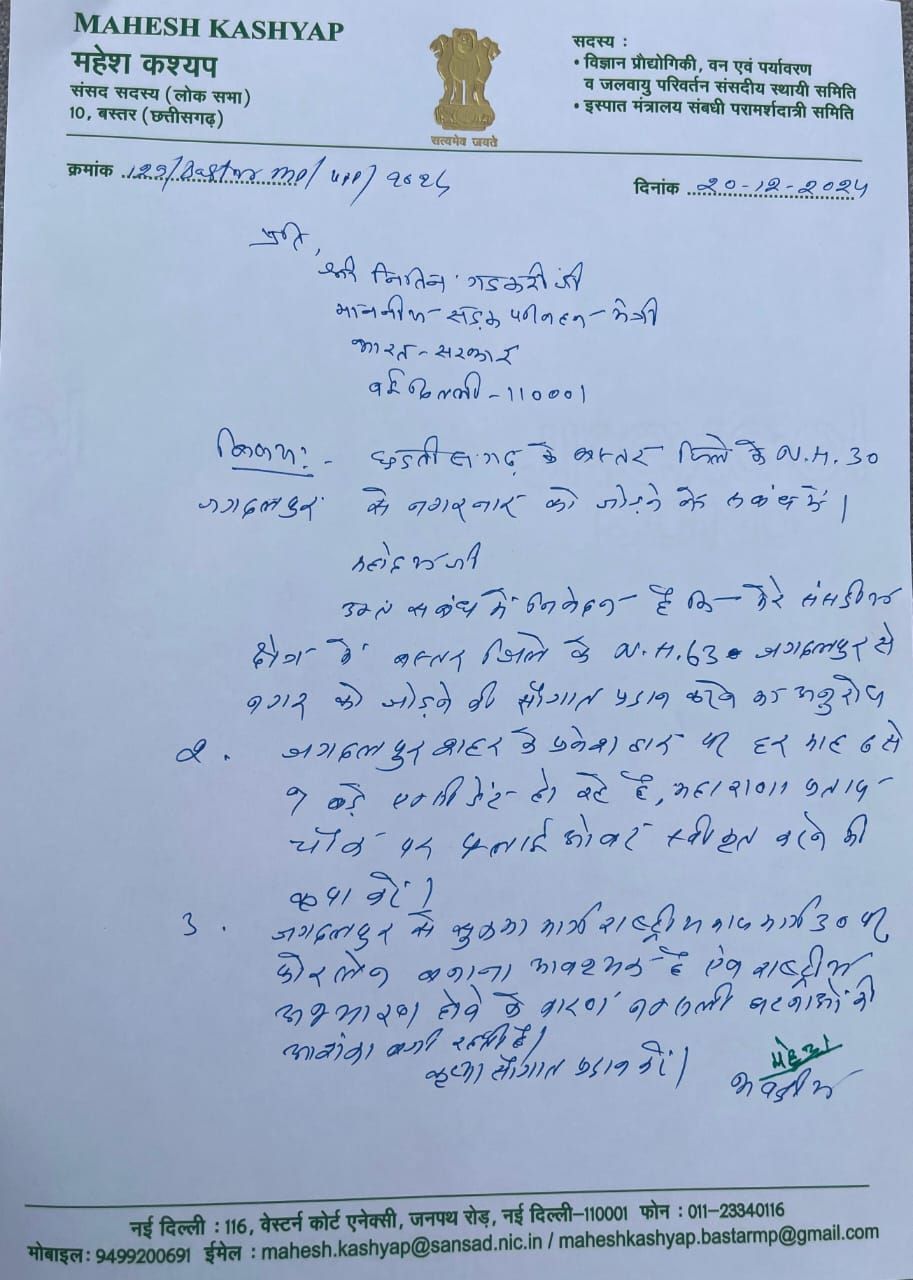 MAHESH KASHYAP
महेश कश्यप
संसद सदस्य (लोक सभा)
10, बस्तर (छत्तीसगढ़)
सत्यमेव जयते
सदस्य :
• विज्ञान प्रौद्योगिकी, वन एवं पर्यावरण
व जलवायु परिवर्तन संसदीय स्थायी समिति
• इस्पात मंत्रालय संबधी परामर्शदात्री समिति
क्रमांक 122/Bastar MP/ 2024
दिनांक 20-12-2024
प्रति,
श्री नितिन गडकरी जी
माननीय सड़क परिवहन मंत्री
भारत सरकार
नई दिल्ली - 110001
विषय:- छत्तीसगढ़ के बस्तर जिले के N.H. 30
जगदलपुर से नगरनार को जोड़ने के संबंध में।
महोदय जी
उक्त संबंध में निवेदन है कि मेरे संसदीय
क्षेत्र के बस्तर जिले के N.H. 63 जगदलपुर से
नगर को जोड़ने की सौगात प्रदान करने का अनुरोध
2. जगदलपुर शहर के प्रवेश द्वार पर हर माह
बड़े एक्सीडेंट हो रहे है, महाराणा प्रताप
चौक पर फ्लाई ओवर स्वीकृत करने की
कृपा करें।
3. जगदलपुर से सुकमा मार्ग राष्ट्रीय राज मार्ग 30 पर
फोरलेन बनाना आवश्यक है एवं राष्ट्रीय
अभ्यारण होने के कारण नक्सली घटनाओं की
आशंका बनी रहती है।
कृपया सौगात प्रदान करें।
महेश
भवदीय
नई दिल्ली : 116, वेस्टर्न कोर्ट एनेक्सी, जनपथ रोड़, नई दिल्ली–110001 फोन : 011-23340116
मोबाइल: 9499200691 ईमेल : mahesh.kashyap@sansad.nic.in / maheshkashyap.bastarmp@gmail.com